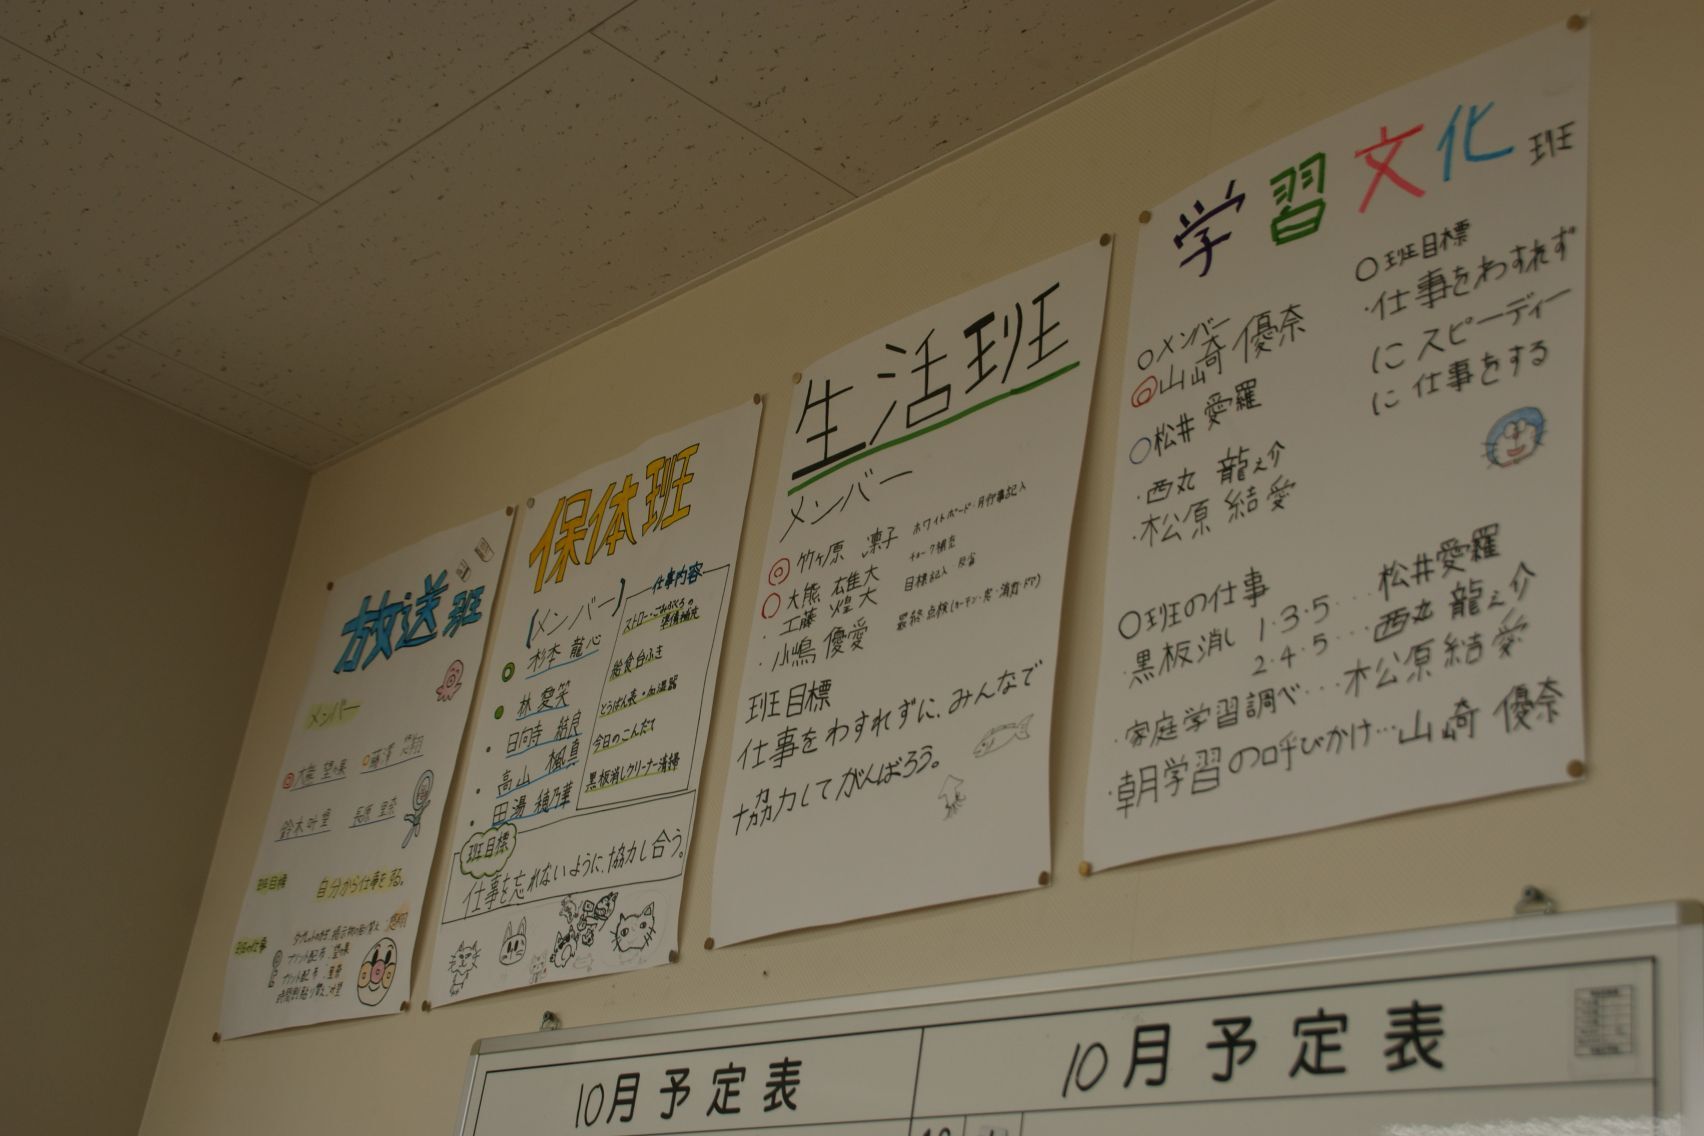 放送班
メンバー
鈴木
班目標
自分から仕事をする。
班の仕事
保体班
(メンバー)
杉本 龍心
林 愛笑
日向寺 結良
高山 楓真
田湯 穂乃華
仕事内容
ストロー・ごみぶくろの
準備補充
給食台ふき
とうばん表・加湿器
今日のこんだて
黒板消しクリーナー清掃
班目標
仕事を忘れないように、協力し合う。
生活班
メンバー
◎竹ヶ原 凛子 ホワイトボード・月行事記入
○大熊 雄大 チョーク補充
・工藤 煌大 目標記入
・小嶋 優愛 最終点検(カーテン・窓・消灯・ドア)
班目標
仕事をわすれずに、みんなで
協力してがんばろう。
学習文化班
○メンバー
◎山崎 優奈
○松井 愛羅
・西丸 龍之介
・松原 結愛
○班目標
・仕事をわすれず
にスピーディー
に仕事をする
○班の仕事
・黒板消し 1・3・5…松井愛羅
2・4・5…西丸 龍之介
・家庭学習調べ…松原結愛
・朝学習の呼びかけ…山崎 優奈
10月予定表
10月予定表